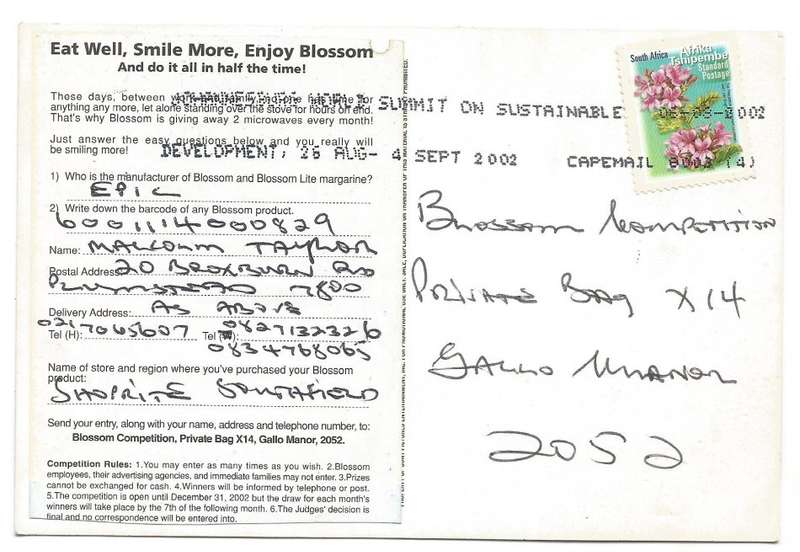 Eat Well, Smile More, Enjoy Blossom
And do it all in half the time!
These days, between
anything any more, let alone standing over the stove for hours on end.
That's why Blossom is giving away 2 microwaves every month!
Just answer the easy questions below and you really will
be smiling more!
1) Who is the manufacturer of Blossom and Blossom Lite margarine?
EPIC
2) Write down the barcode of any Blossom product.
6001114000829
Name: MALCOLM TAYLOR
Postal Address: 20 BROXBURN RD
PLUMSTEAD 7800
Delivery Address: AS ABOVE
Tel (H): 0217065607 Tel (W): 0827132326
0834768065
Name of store and region where you've purchased your Blossom
product:
SHOPRITE SOUTHFIELD
Send your entry, along with your name, address and telephone number, to:
Blossom Competition, Private Bag X14, Gallo Manor, 2052.
Competition Rules: 1.You may enter as many times as you wish. 2.Blossom
employees, their advertising agencies, and immediate families may not enter. 3.Prizes
cannot be exchanged for cash. 4.Winners will be informed by telephone or post.
5.The competition is open until December 31, 2002 but the draw for each month's
winners will take place by the 7th of the following month. 6.The Judges' decision is
final and no correspondence will be entered into.
SUMMIT ON SUSTAINABLE
DEVELOPMENT, 26 AUG- 4 SEPT 2002 CAPEMAIL 8003 (4)
South Africa
Afrika
Tshipembe
Standard
Postage
BLOSSOM KOMPETITION
PRIVATE BAG X14
GALLO MANOR
2052